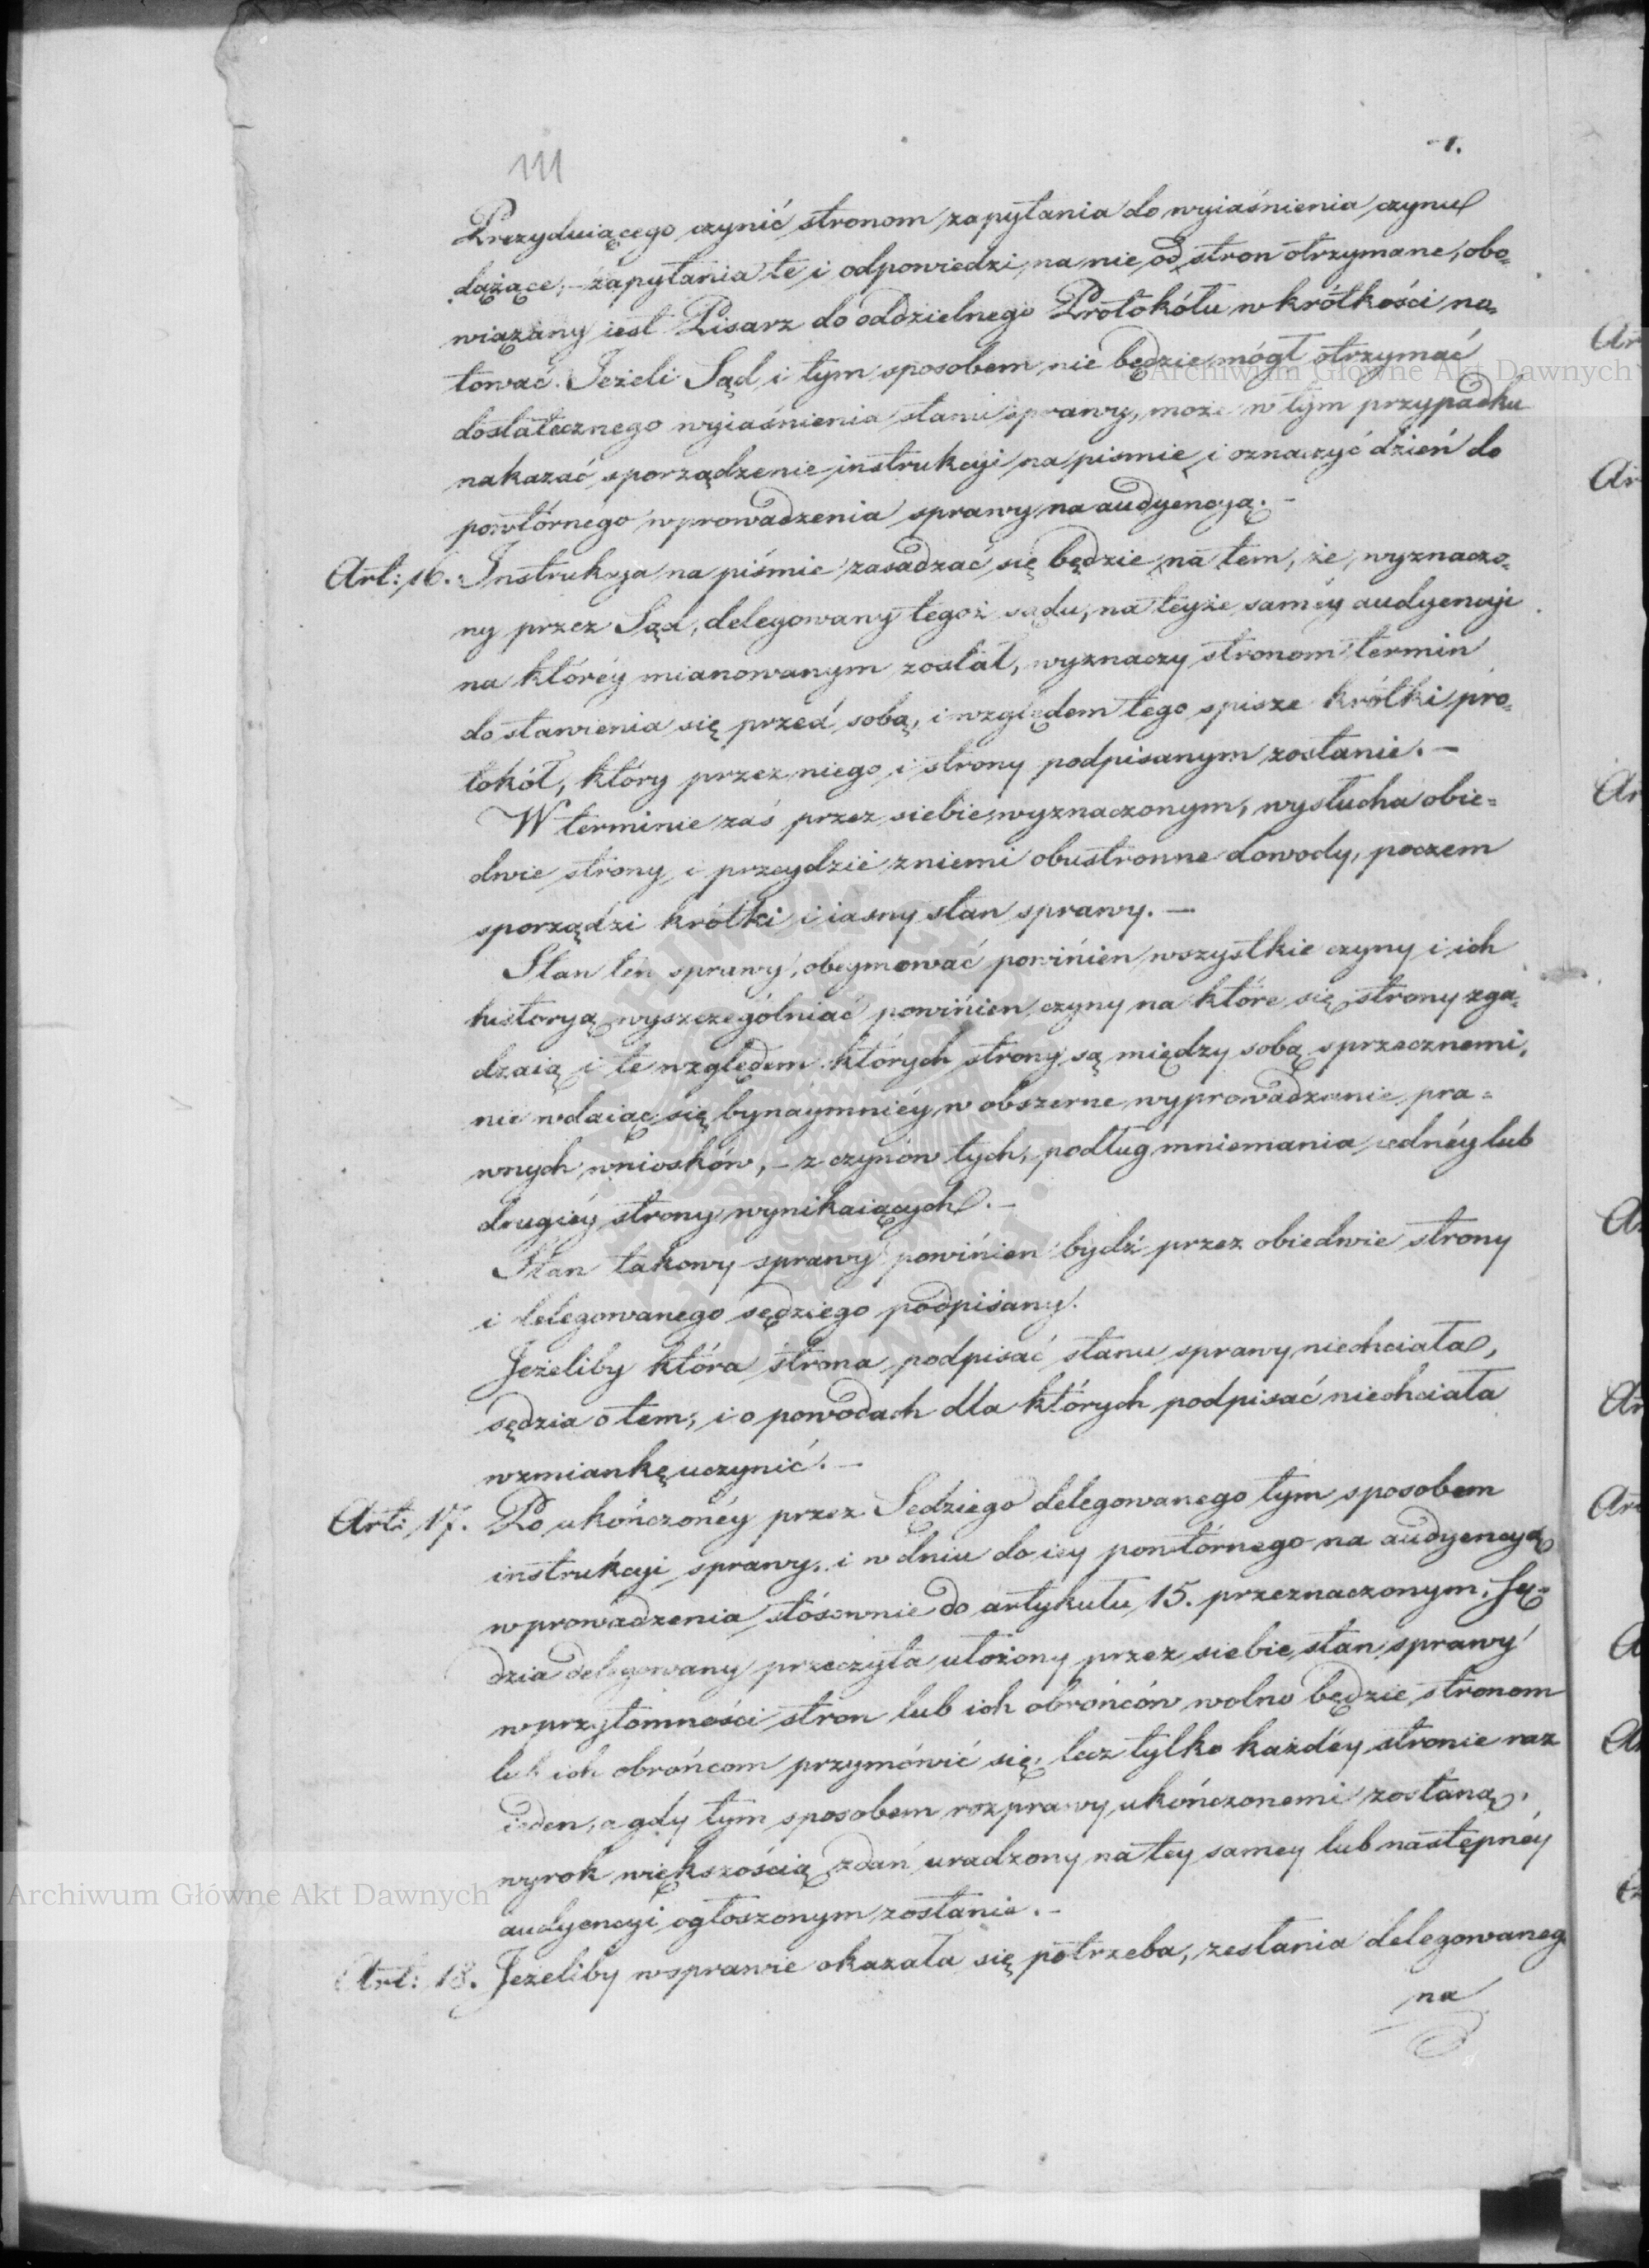 111
1.
Prezyduiącego czynić stronom zapytania do wyiaśnienia czynu
dążące, – zapytania te i odpowiedzi na nie od stron otrzymane, obo-
wiązany iest Pisarz do oddzielnego Protokółu w krótkości no-
tować. Jeżeli Sąd i tym sposobem nie będzie mógł otrzymać
dostatecznego wyiaśnienia stanu sprawy, może w tym przypadku
nakazać sporządzenie instrukcyi na pismie i oznaczyć dzień do
powtórnego wprowadzenia sprawy na audyencyą. –
Art: 16. Instrukcyja na piśmie zasadzać się będzie na tem, że, wyznaczo-
ny przez Sąd, delegowany tegoż sądu, na teyże saméy audyencyi
na któréy mianowanym został, wyznaczy stronom termin
do stawienia się przed sobą, i względem tego spisze krótki pro-
tokół, który przez niego i strony podpisanym zostanie. –
W terminie zaś przez siebie wyznaczonym, wysłucha obie-
dwie strony i przeydzie z niemi obustronne dowody, poczem
sporządzi krótki i iasny stan sprawy. –
Stan ten sprawy, obeymować powinien wszystkie czyny i ich
historyą wyszczególniać powinien czyny na które się strony zga-
dzaią i te względem których strony są między sobą sprzecznemi,
nie wdaiąc się bynaymniéy w obszerne wyprowadzanie pra-
wnych wniosków, – z czynów tych, podług mniemania iednéy lub
drugiéy strony wynikaiących. –
Stan takowy sprawy powinien bydź przez obiedwie strony
i delegowanego sędziego podpisany.
Jeżeliby która strona podpisać stanu sprawy niechciała,
sędzia o tem, i o powodach dla których podpisać niechciała
wzmiankę uczynić. –
Art: 17. Po ukończonéy przez Sędziego delegowanego tym sposobem
instrukcyi sprawy, i w dniu do iey powtórnego na audyencyą
wprowadzenia stósownie do artykułu 15. przeznaczonym, Sę-
dzia delegowany przeczyta ułożony przez siebie stan sprawy
w przytomności stron lub ich obrońców wolno będzie stronom
lub ich obrońcom przymówić się, lecz tylko każdéy stronie raz
ieden, a gdy tym sposobem rozprawy ukończonemi zostaną,
wyrok większością zdań uradzony na tey samey lub następnéy
audyencyi ogłoszonym zostanie. –
Art: 18. Jeżeliby w sprawie okazała się potrzeba, zesłania delegowaneg
na
Archiwum Główne Akt Dawnych
Archiwum Główne Akt Dawnych